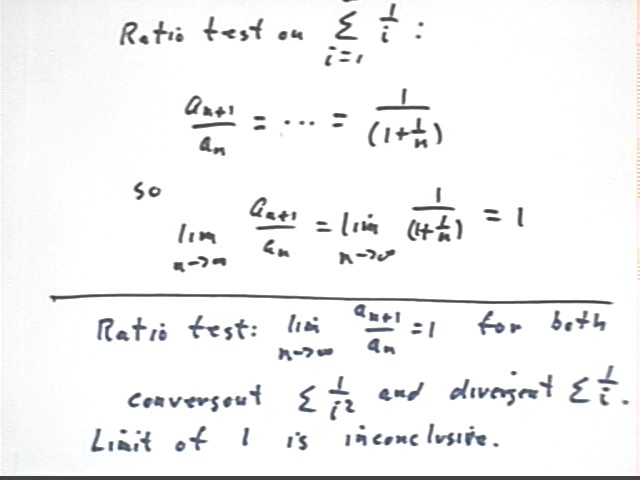 Ratio test on ∑_{i=1} 1/i :
a_{n+1}/a_n = ... = 1/(1+1/n)
so
lim_{n→∞} a_{n+1}/a_n = lim_{n→∞} 1/(1+1/n) = 1
Ratio test: lim_{n→∞} a_{n+1}/a_n = 1 for both
convergent ∑ 1/i² and divergent ∑ 1/i.
Limit of 1 is inconclusive.